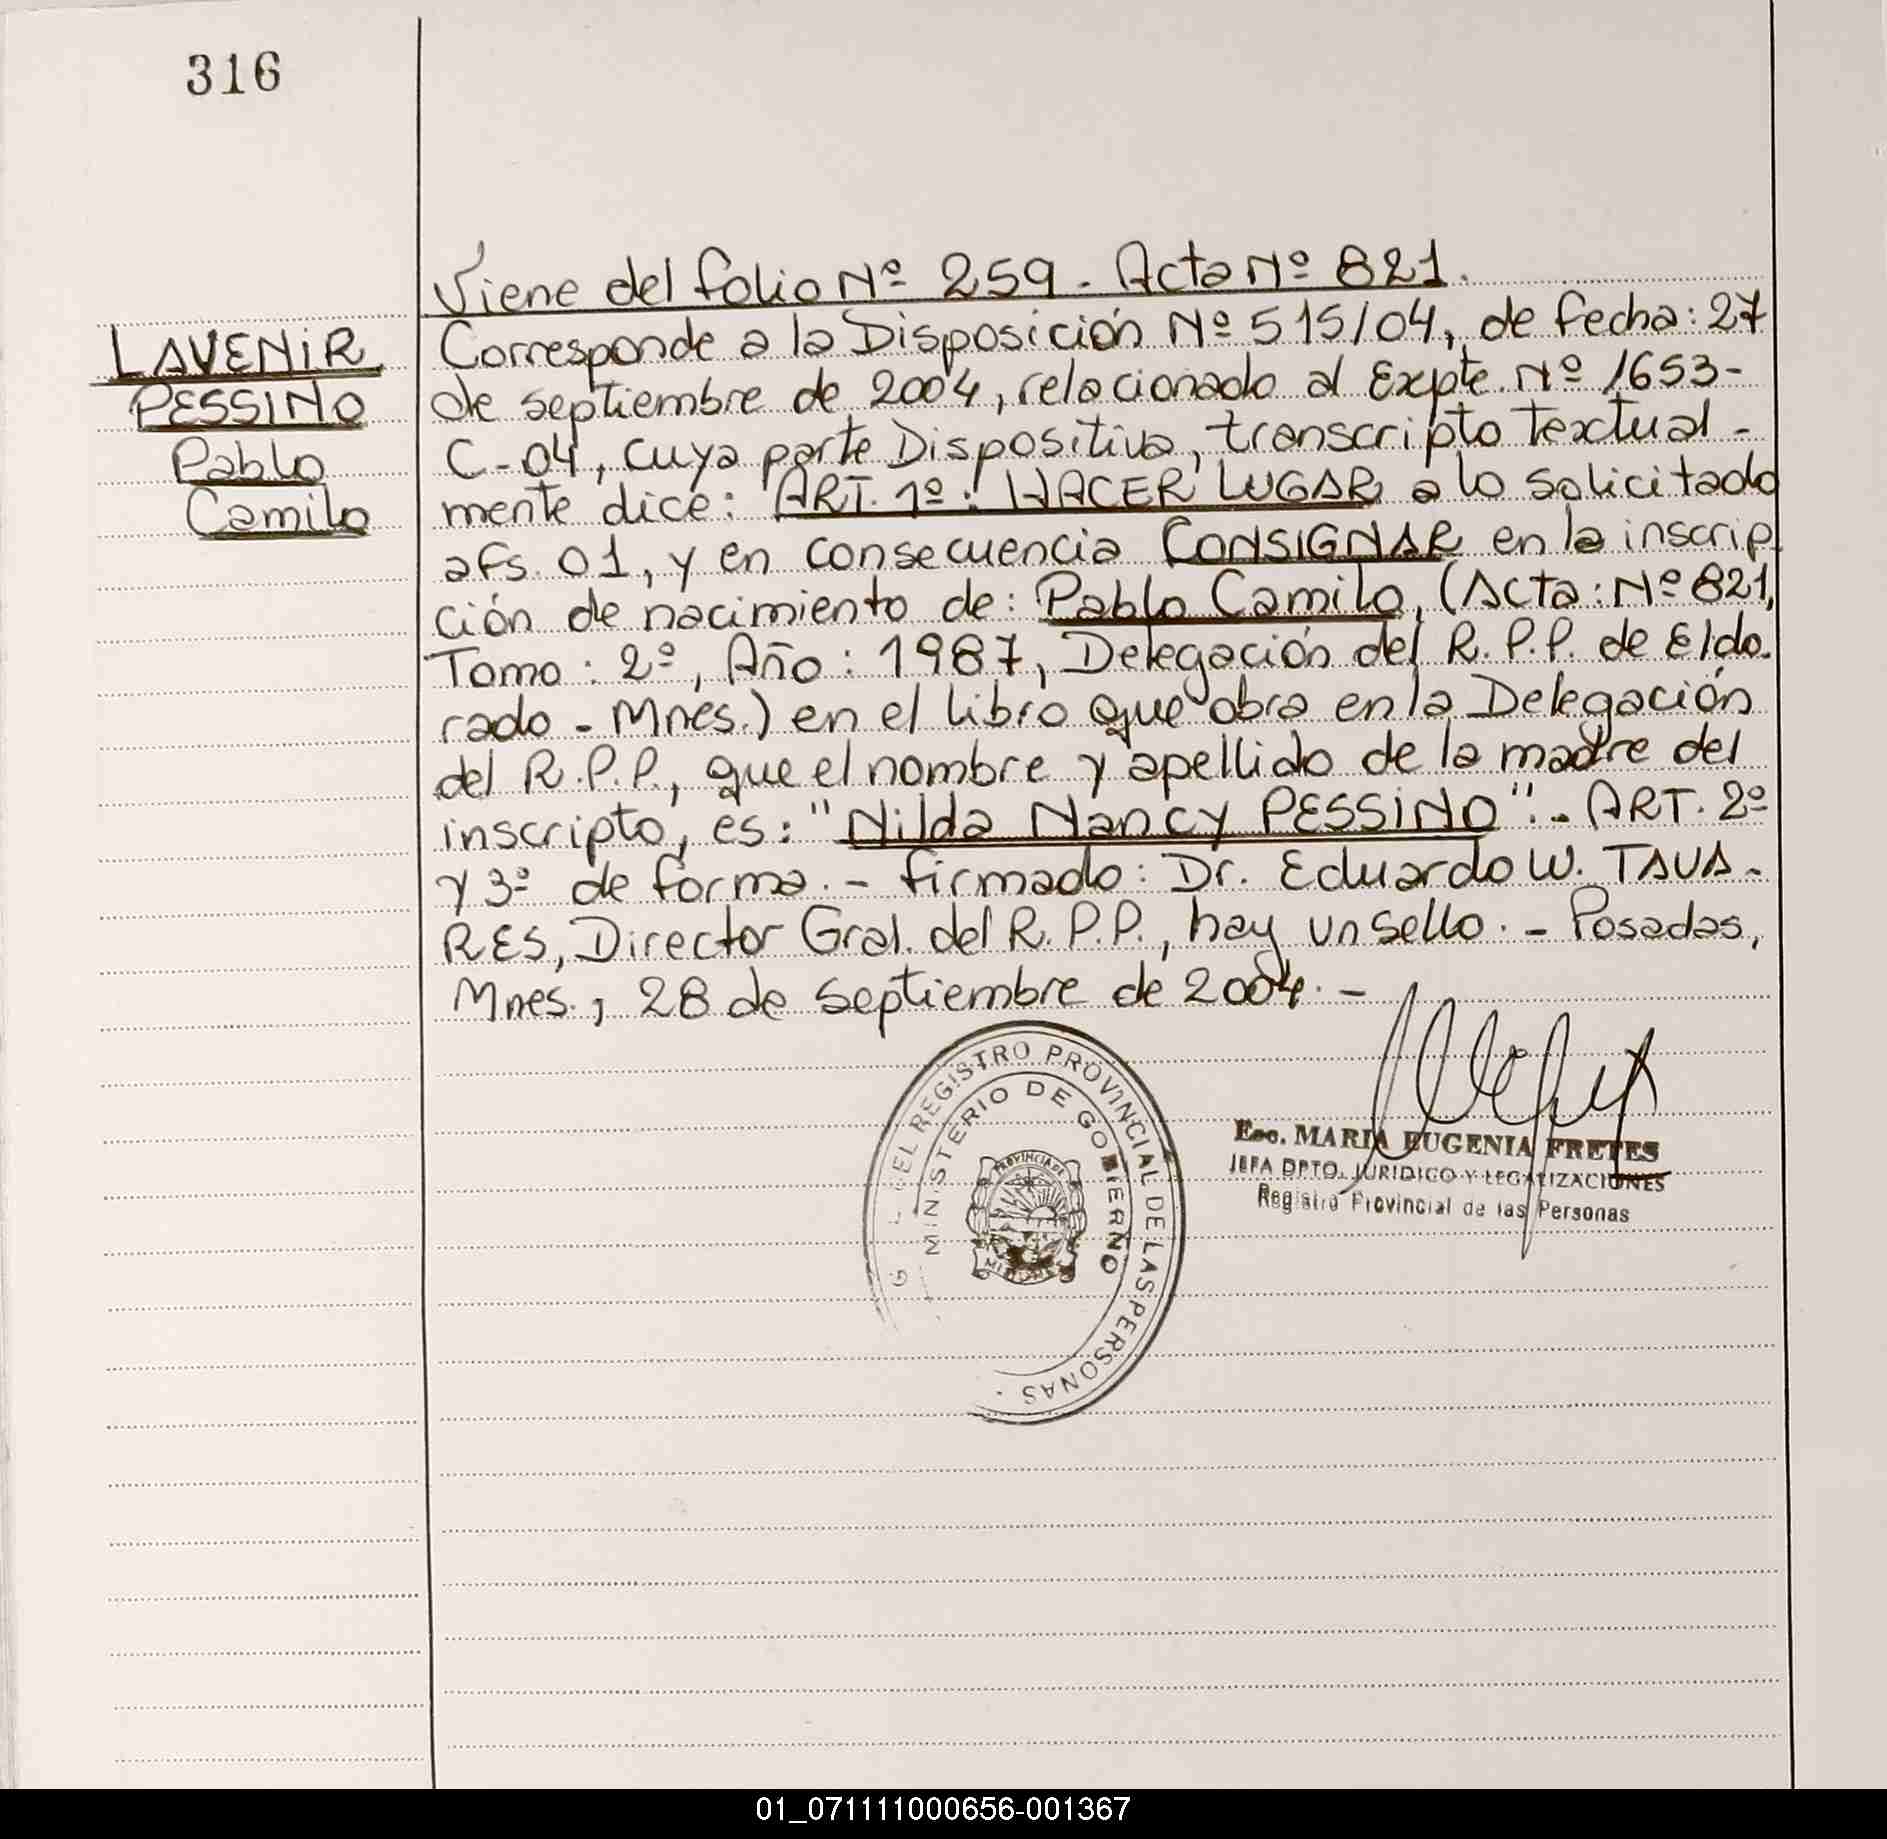 316
Viene del folio Nº 259. Acta Nº 821.
LAVENIR
PESSINO
Pablo
Camilo
Corresponde a la Disposición Nº 515/04, de fecha: 27
de septiembre de 2004, relacionado al Expte. Nº 1653-
C-04, cuya parte Dispositiva, transcripto textual-
mente dice: ART. 1º: HACER LUGAR a lo solicitado
a fs. 01, y en consecuencia CONSIGNAR en la inscrip
ción de nacimiento de: Pablo Camilo, (Acta: Nº 821,
Tomo: 2º, Año: 1987, Delegación del R.P.P. de Eldo.
rado - Mnes.) en el libro que obra en la Delegación
del R.P.P., que el nombre y apellido de la madre del
inscripto, es: "Nilda Nancy PESSINO".- ART. 2º
y 3º de forma.- firmado: Dr. Eduardo W. TAVA-
RES, Director Gral. del R.P.P., hay un sello.- Posadas,
Mnes., 28 de septiembre de 2004.-
EL REGISTRO PROVINCIAL DE LAS PERSONAS
MINISTERIO DE GOBIERNO
PROVINCIA DE
MISIONES
Esc. MARIA EUGENIA FRETES
JEFA DPTO. JURIDICO Y LEGALIZACIONES
Registro Provincial de las Personas
01_071111000656-001367